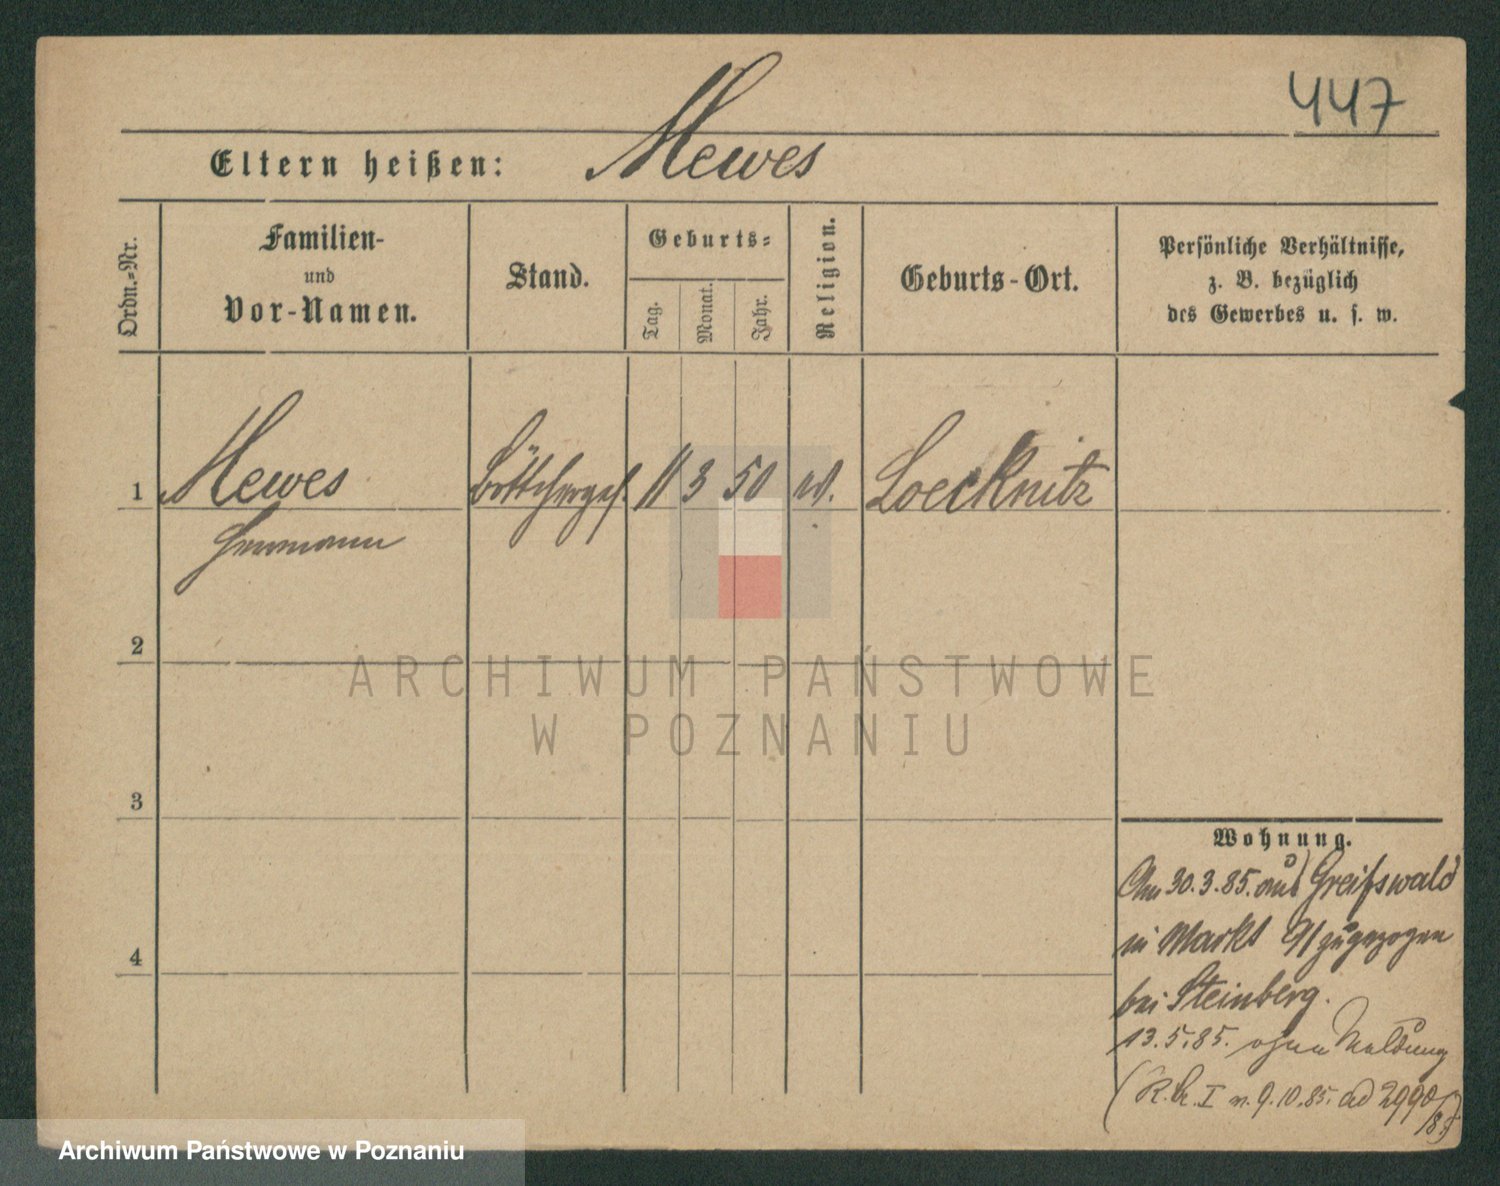 447
Eltern heißen: Mewes
Ordn.-Nr.
Familien-
und
Vor-Namen.
Stand.
Geburts-
Tag.
Monat.
Jahr.
Religion.
Geburts-Ort.
Persönliche Verhältnisse,
z. B. bezüglich
des Gewerbes u. s. w.
1 Mewes Böttcherges. 11 3 50 ev. Loecknitz
Hermann
2
ARCHIWUM PAŃSTWOWE
W POZNANIU
3
4
Wohnung.
Am 30.3.85. aus Greifswald
in Markt 91 zugezogen
bei Steinberg.
13.5.85. ohne Meldung
(R. I v. 9.10.85. ad 2990/85)
Archiwum Państwowe w Poznaniu